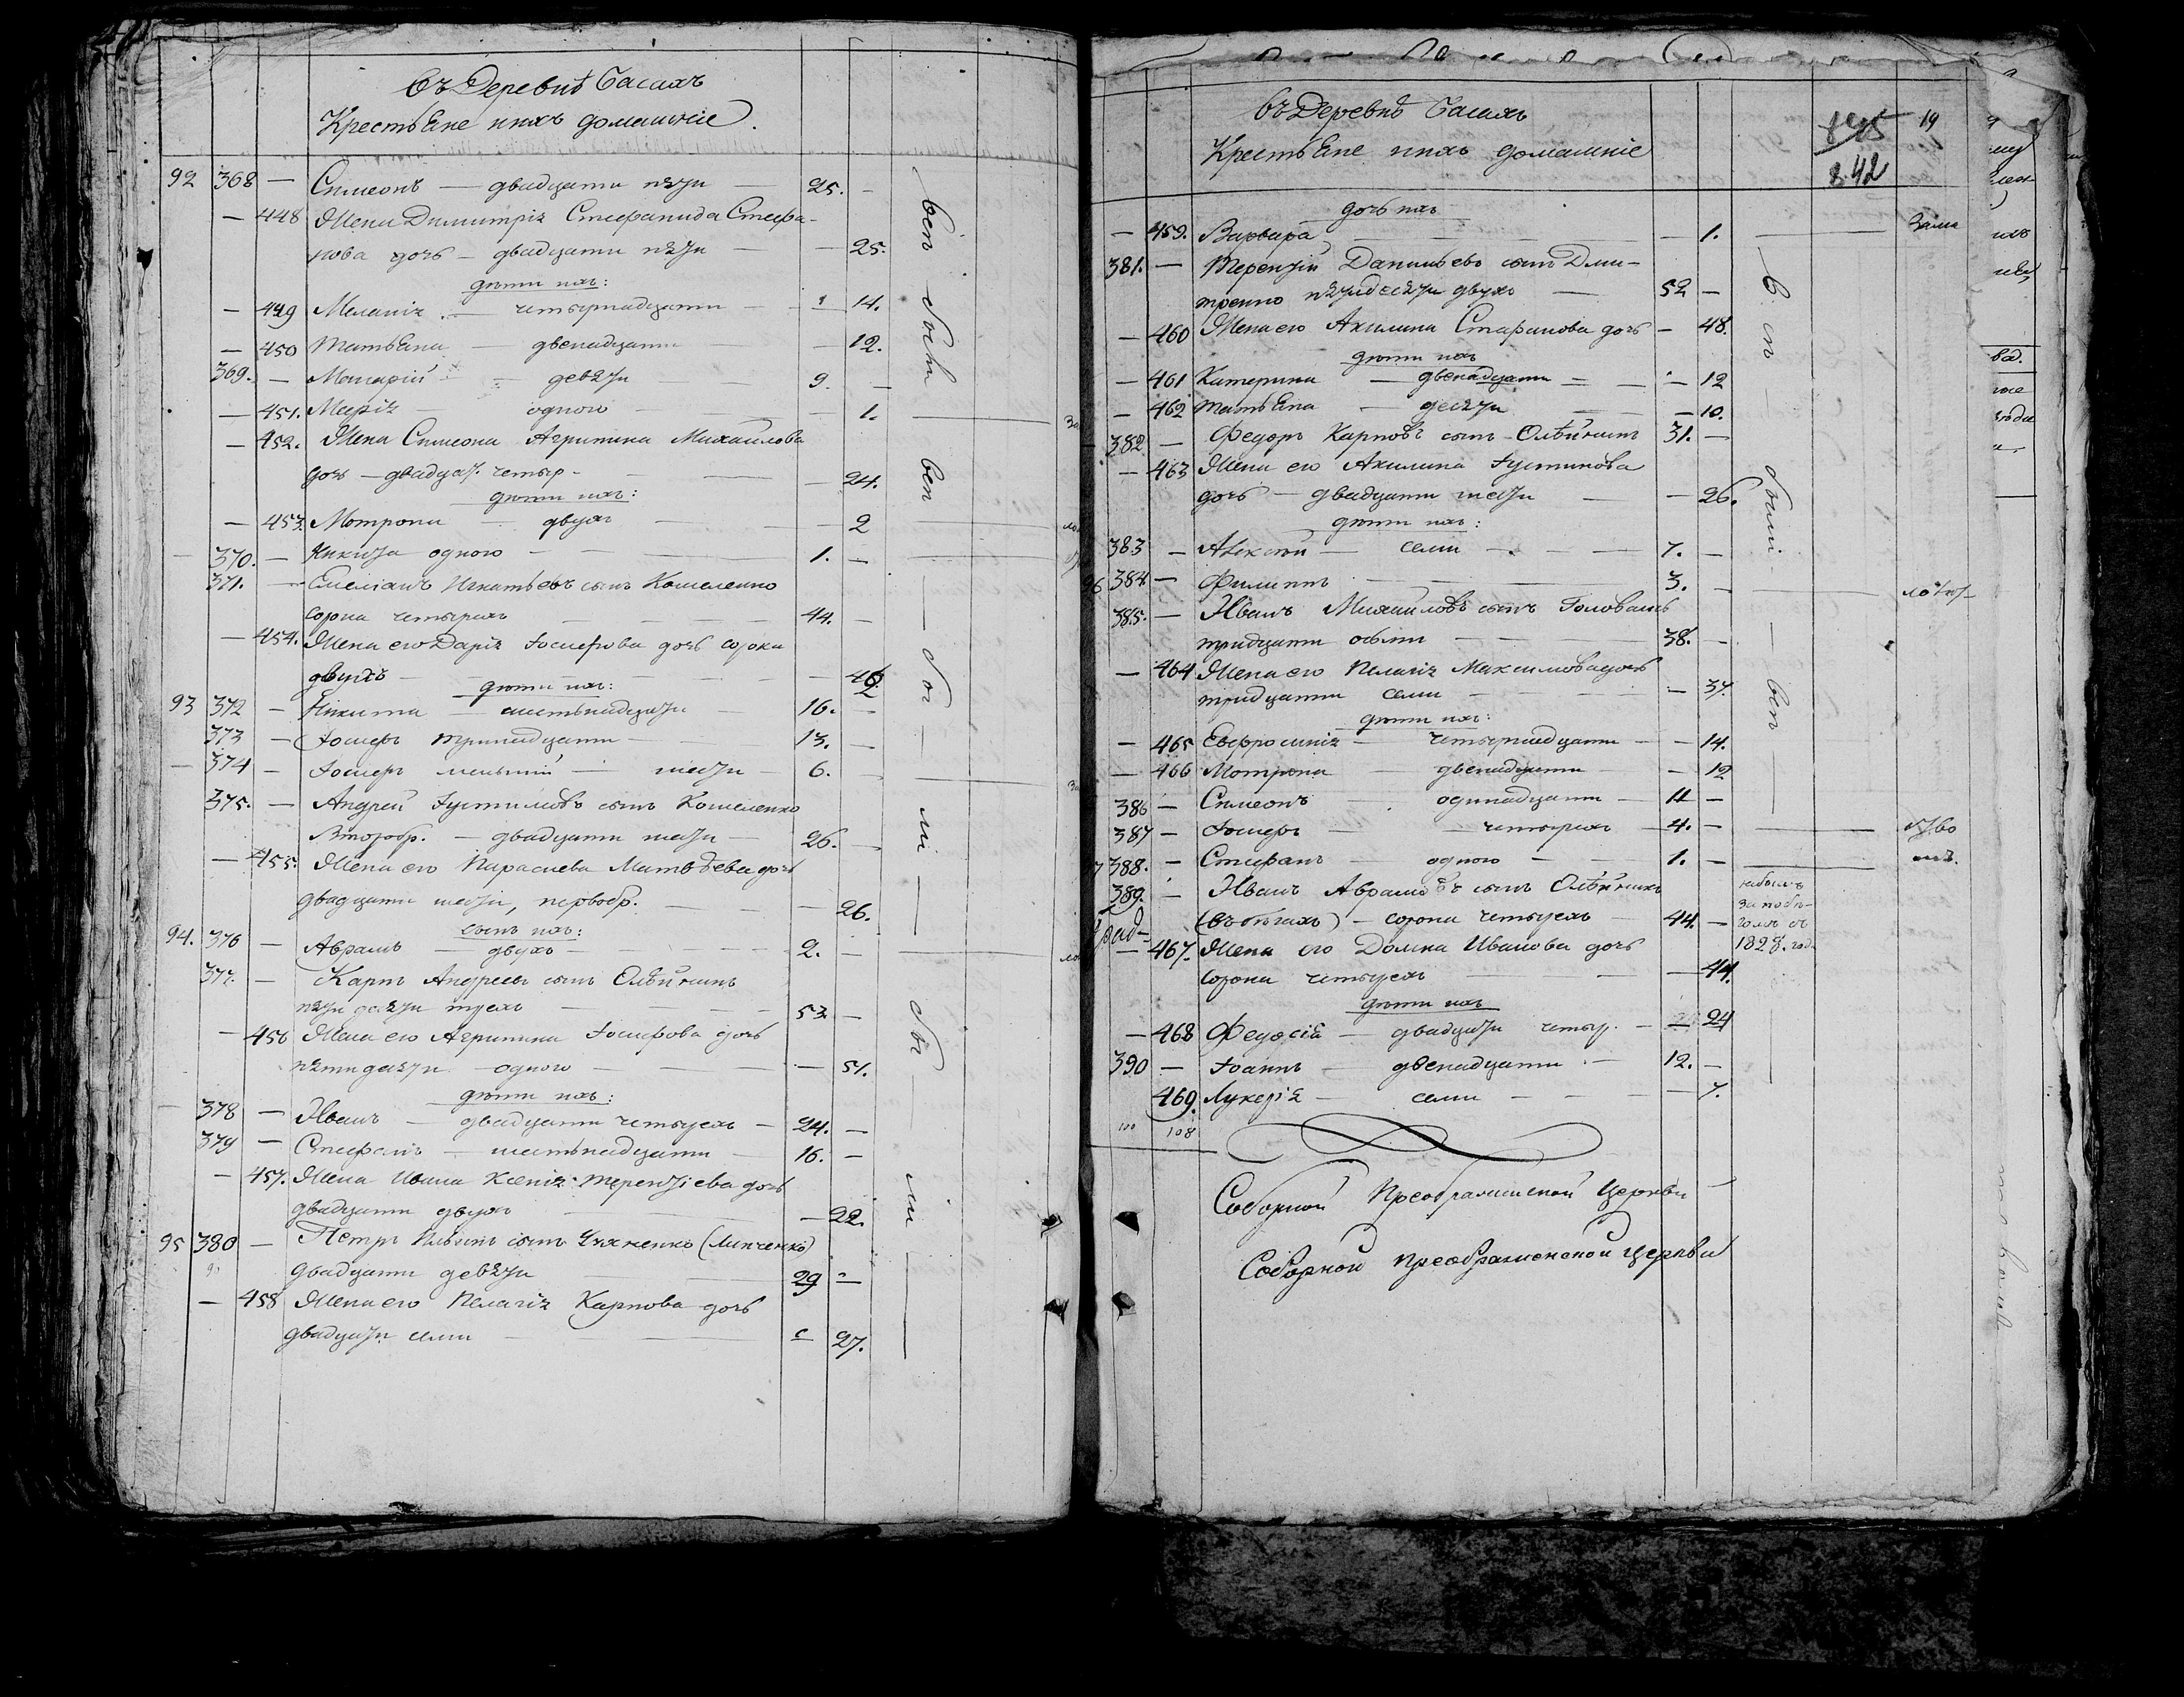 въ Деревнѣ Басахъ
Крестьяне и ихъ домашніе.
92 368 — Симеонъ — двадцати пяти — 25. —
— 448 Жена Димитрія Стефанида Стефа-
нова дочь — двадцати пяти — — 25.
дѣти ихъ:
— 449 Меланія — четырнадцати — — 14.
— 450 Татьяна — двенадцати — 12.
369. — Макарій — девяти 9. —
— 451. Марія — одного — 1.
— 452. Жена Симеона Агрипина Михайлова
дочь — двадцат. четыр — — 24.
дѣти ихъ:
— 453. Мотрона — двухъ — — 2
370. — Никита одного — 1. —
371. — Емеліанъ Игнатьевъ сынъ Кошеленко
сорока четырехъ 44. —
— 454. Жена его Дарія Іосифова дочь сорока
двухъ — — 42
дѣти ихъ:
93 372 — Никита — шестьнадцати 16. —
373 — Іосифъ тринадцати — 13. —
— 374 — Іосифъ меньшій — шести — 6. —
375. — Андрей Іустимовъ сынъ Кошеленко
Второбр. — двадцати шести — 26. —
— 455. Жена его Параскева Матвѣева дочь
двадцати шести, первобр. — — 26.
сынъ ихъ:
94. 376 — Авраамъ — двухъ — 2. —
377. — Карпъ Андреевъ сынъ Олѣйникъ
пятидесяти трехъ — 53 —
— 456 Жена его Агрипина Іосифова дочь
пятидесяти — одного — — 51.
дѣти ихъ:
378 — Иванъ — двадцати четырехъ — 24. —
379 — Стефанъ — шестьнадцати 16. —
— 457. Жена Ивана Ксенія Терентіева дочь
двадцати двухъ — 22.
95 380 — Петръ Ильинъ сынъ (Липченко)
двадцати девяти 29 —
— 458 Жена его Пелагія Карпова дочь
двадцати семи — 27.
въ Деревнѣ Басахъ
Крестьяне и ихъ домашніе
842
19
дочь ихъ
— 459. Варвара — 1.
381. — Терентій Даниловъ сынъ Дми-
тренко пятидесяти двухъ — 52 —
— 460 Жена его Акилина Стефанова дочь — 48.
дѣти ихъ
— 461 Катерина — двенадцати — — 12
— 462 Татьяна — десяти — 10.
382 — Федоръ Карповъ сынъ Олѣйникъ 31. —
— 463 Жена его Акилина Іустинова
дочь — двадцати шести — — 26.
дѣти ихъ:
383 — Алексѣй — семи — 7. —
96 384 — Филиппъ — 3. —
385. — Иванъ Михайловъ сынъ Головань
тридцати осьми — 38. —
— 464 Жена его Пелагія Максимова дочь
тридцати семи — — 37.
дѣти ихъ:
— 465 Евфросинія — четырнадцати — — 14.
— 466 Мотрона — двенадцати — 12
386 — Симеонъ — одинадцати — 11 —
387 — Іосифъ — четырехъ — 4. —
388. — Стефанъ — одного — 1. —
389. — Иванъ Авраамовъ сынъ Олѣйникъ
(въ бѣгахъ) — сорока четырехъ 44. —
— 467. Жена его Домна Иванова дочь
сорока четырехъ — — 44.
дѣти ихъ
— 468 Федосія — двадцати четыр. — — 24
390 — Іоаннъ — двенадцати — 12. —
469. Лукерія — семи — — 7.
100 108
небылъ
за побѣ-
гомъ съ
1828. год
Соборной Преображенской Церкви
Соборной Преображенской Церкви